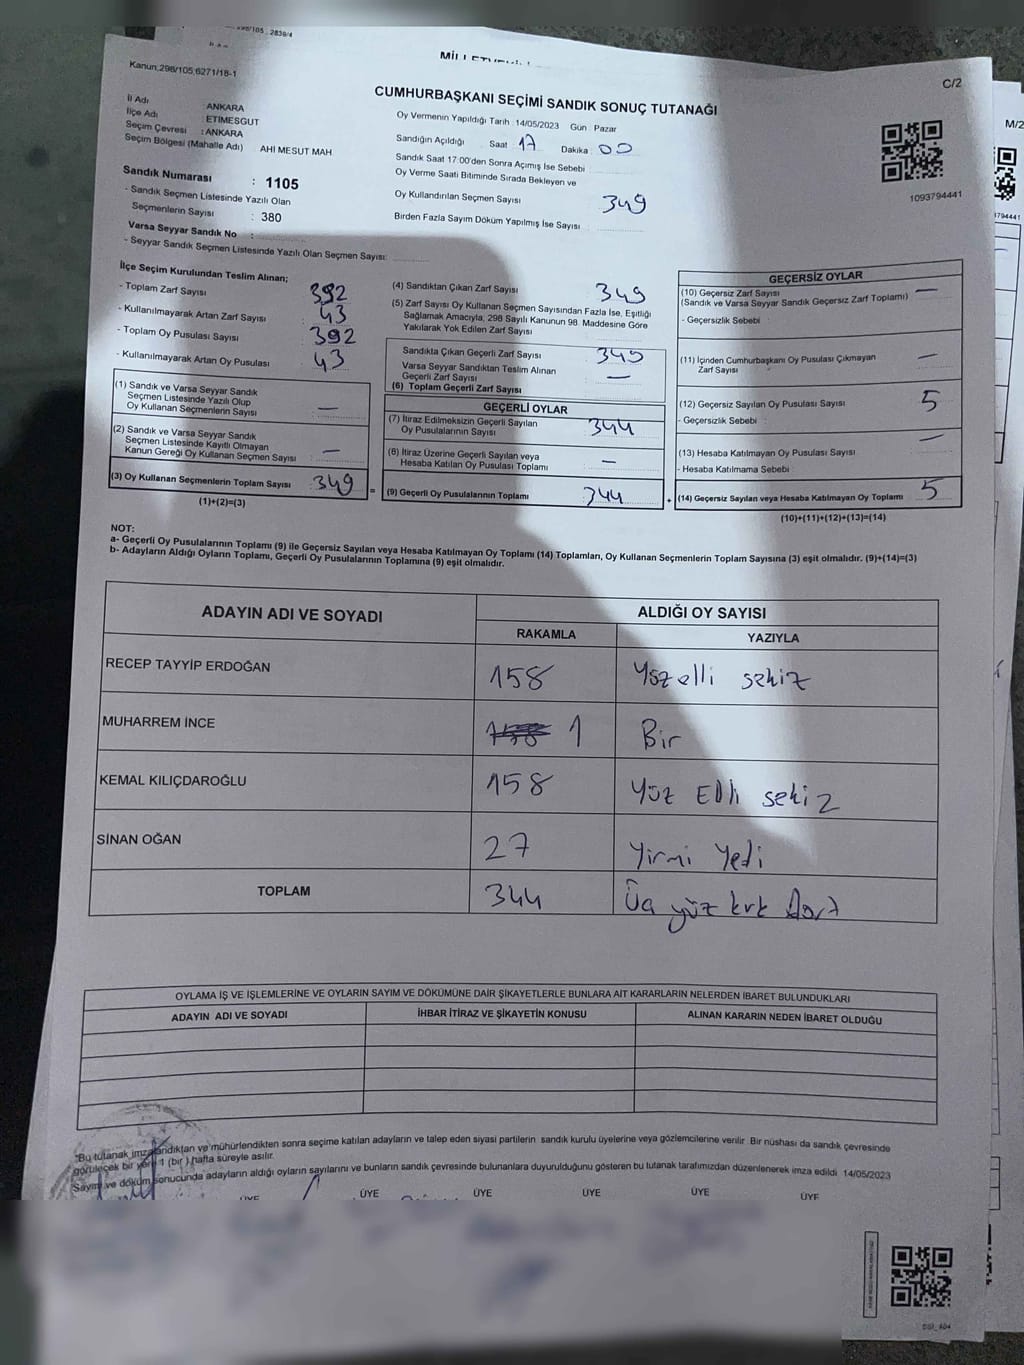 Kanun 298/105,6271/18-1
C/2
CUMHURBAŞKANI SEÇİMİ SANDIK SONUÇ TUTANAĞI
İl Adı : ANKARA
İlçe Adı : ETİMESGUT
Seçim Çevresi : ANKARA
Seçim Bölgesi (Mahalle Adı) AHİ MESUT MAH.
Oy Vermenin Yapıldığı Tarih : 14/05/2023 Gün : Pazar
Sandığın Açıldığı Saat 17 Dakika : 00
Sandık Saat 17:00'den Sonra Açımış İse Sebebi
Oy Verme Saati Bitiminde Sırada Bekleyen ve
Oy Kullandırılan Seçmen Sayısı 349
Birden Fazla Sayım Döküm Yapılmış İse Sayısı
M/2
1093794441
Sandık Numarası : 1105
- Sandık Seçmen Listesinde Yazılı Olan
Seçmenlerin Sayısı : 380
Varsa Seyyar Sandık No :
- Seyyar Sandık Seçmen Listesinde Yazılı Olan Seçmen Sayısı:
İlçe Seçim Kurulundan Teslim Alınan;
- Toplam Zarf Sayısı 392
- Kullanılmayarak Artan Zarf Sayısı 43
- Toplam Oy Pusulası Sayısı 392
- Kullanılmayarak Artan Oy Pusulası 43
(1) Sandık ve Varsa Seyyar Sandık
Seçmen Listesinde Yazılı Olup
Oy Kullanan Seçmenlerin Sayısı —
(2) Sandık ve Varsa Seyyar Sandık
Seçmen Listesinde Kayıtlı Olmayan
Kanun Gereği Oy Kullanan Seçmen Sayısı —
(3) Oy Kullanan Seçmenlerin Toplam Sayısı 349 =
(1)+(2)=(3)
(4) Sandıktan Çıkan Zarf Sayısı 349
(5) Zarf Sayısı Oy Kullanan Seçmen Sayısından Fazla İse, Eşitliği
Sağlamak Amacıyla, 298 Sayılı Kanunun 98. Maddesine Göre
Yakılarak Yok Edilen Zarf Sayısı
Sandıkta Çıkan Geçerli Zarf Sayısı
Varsa Seyyar Sandıktan Teslim Alınan
Geçerli Zarf Sayısı —
(6) Toplam Geçerli Zarf Sayısı
GEÇERLİ OYLAR
(7) İtiraz Edilmeksizin Geçerli Sayılan
Oy Pusulalarının Sayısı 344
(8) İtiraz Üzerine Geçerli Sayılan veya
Hesaba Katılan Oy Pusulası Toplamı —
(9) Geçerli Oy Pusulalarının Toplamı 344 +
GEÇERSİZ OYLAR
(10) Geçersiz Zarf Sayısı —
(Sandık ve Varsa Seyyar Sandık Geçersiz Zarf Toplamı)
- Geçersizlik Sebebi :
(11) İçinden Cumhurbaşkanı Oy Pusulası Çıkmayan
Zarf Sayısı —
(12) Geçersiz Sayılan Oy Pusulası Sayısı 5
- Geçersizlik Sebebi :
(13) Hesaba Katılmayan Oy Pusulası Sayısı —
- Hesaba Katılmama Sebebi :
(14) Geçersiz Sayılan veya Hesaba Katılmayan Oy Toplamı 5
(10)+(11)+(12)+(13)=(14)
NOT:
a- Geçerli Oy Pusulalarının Toplamı (9) ile Geçersiz Sayılan veya Hesaba Katılmayan Oy Toplamı (14) Toplamları, Oy Kullanan Seçmenlerin Toplam Sayısına (3) eşit olmalıdır. (9)+(14)=(3)
b- Adayların Aldığı Oyların Toplamı, Geçerli Oy Pusulalarının Toplamına (9) eşit olmalıdır.
ADAYIN ADI VE SOYADI ALDIĞI OY SAYISI
RAKAMLA YAZIYLA
RECEP TAYYİP ERDOĞAN 158 Yüz elli sekiz
MUHARREM İNCE 1 Bir
KEMAL KILIÇDAROĞLU 158 Yüz Elli sekiz
SİNAN OĞAN 27 Yirmi Yedi
TOPLAM 344 Üç yüz kırk Dört
OYLAMA İŞ VE İŞLEMLERİNE VE OYLARIN SAYIM VE DÖKÜMÜNE DAİR ŞİKAYETLERLE BUNLARA AİT KARARLARIN NELERDEN İBARET BULUNDUKLARI
ADAYIN ADI VE SOYADI İHBAR İTİRAZ VE ŞİKAYETİN KONUSU ALINAN KARARIN NEDEN İBARET OLDUĞU
*Bu tutanak imzalandıktan ve mühürlendikten sonra seçime katılan adayların ve talep eden siyasi partilerin sandık kurulu üyelerine veya gözlemcilerine verilir. Bir nüshası da sandık çevresinde
görülecek bir yere 1 (bir) hafta süreyle asılır.
Sayım ve döküm sonucunda adayların aldığı oyların sayılarını ve bunların sandık çevresinde bulunanlara duyurulduğunu gösteren bu tutanak tarafımızdan düzenlenerek imza edildi 14/05/2023
ÜYE ÜYE ÜYE ÜYE ÜYE ÜYE